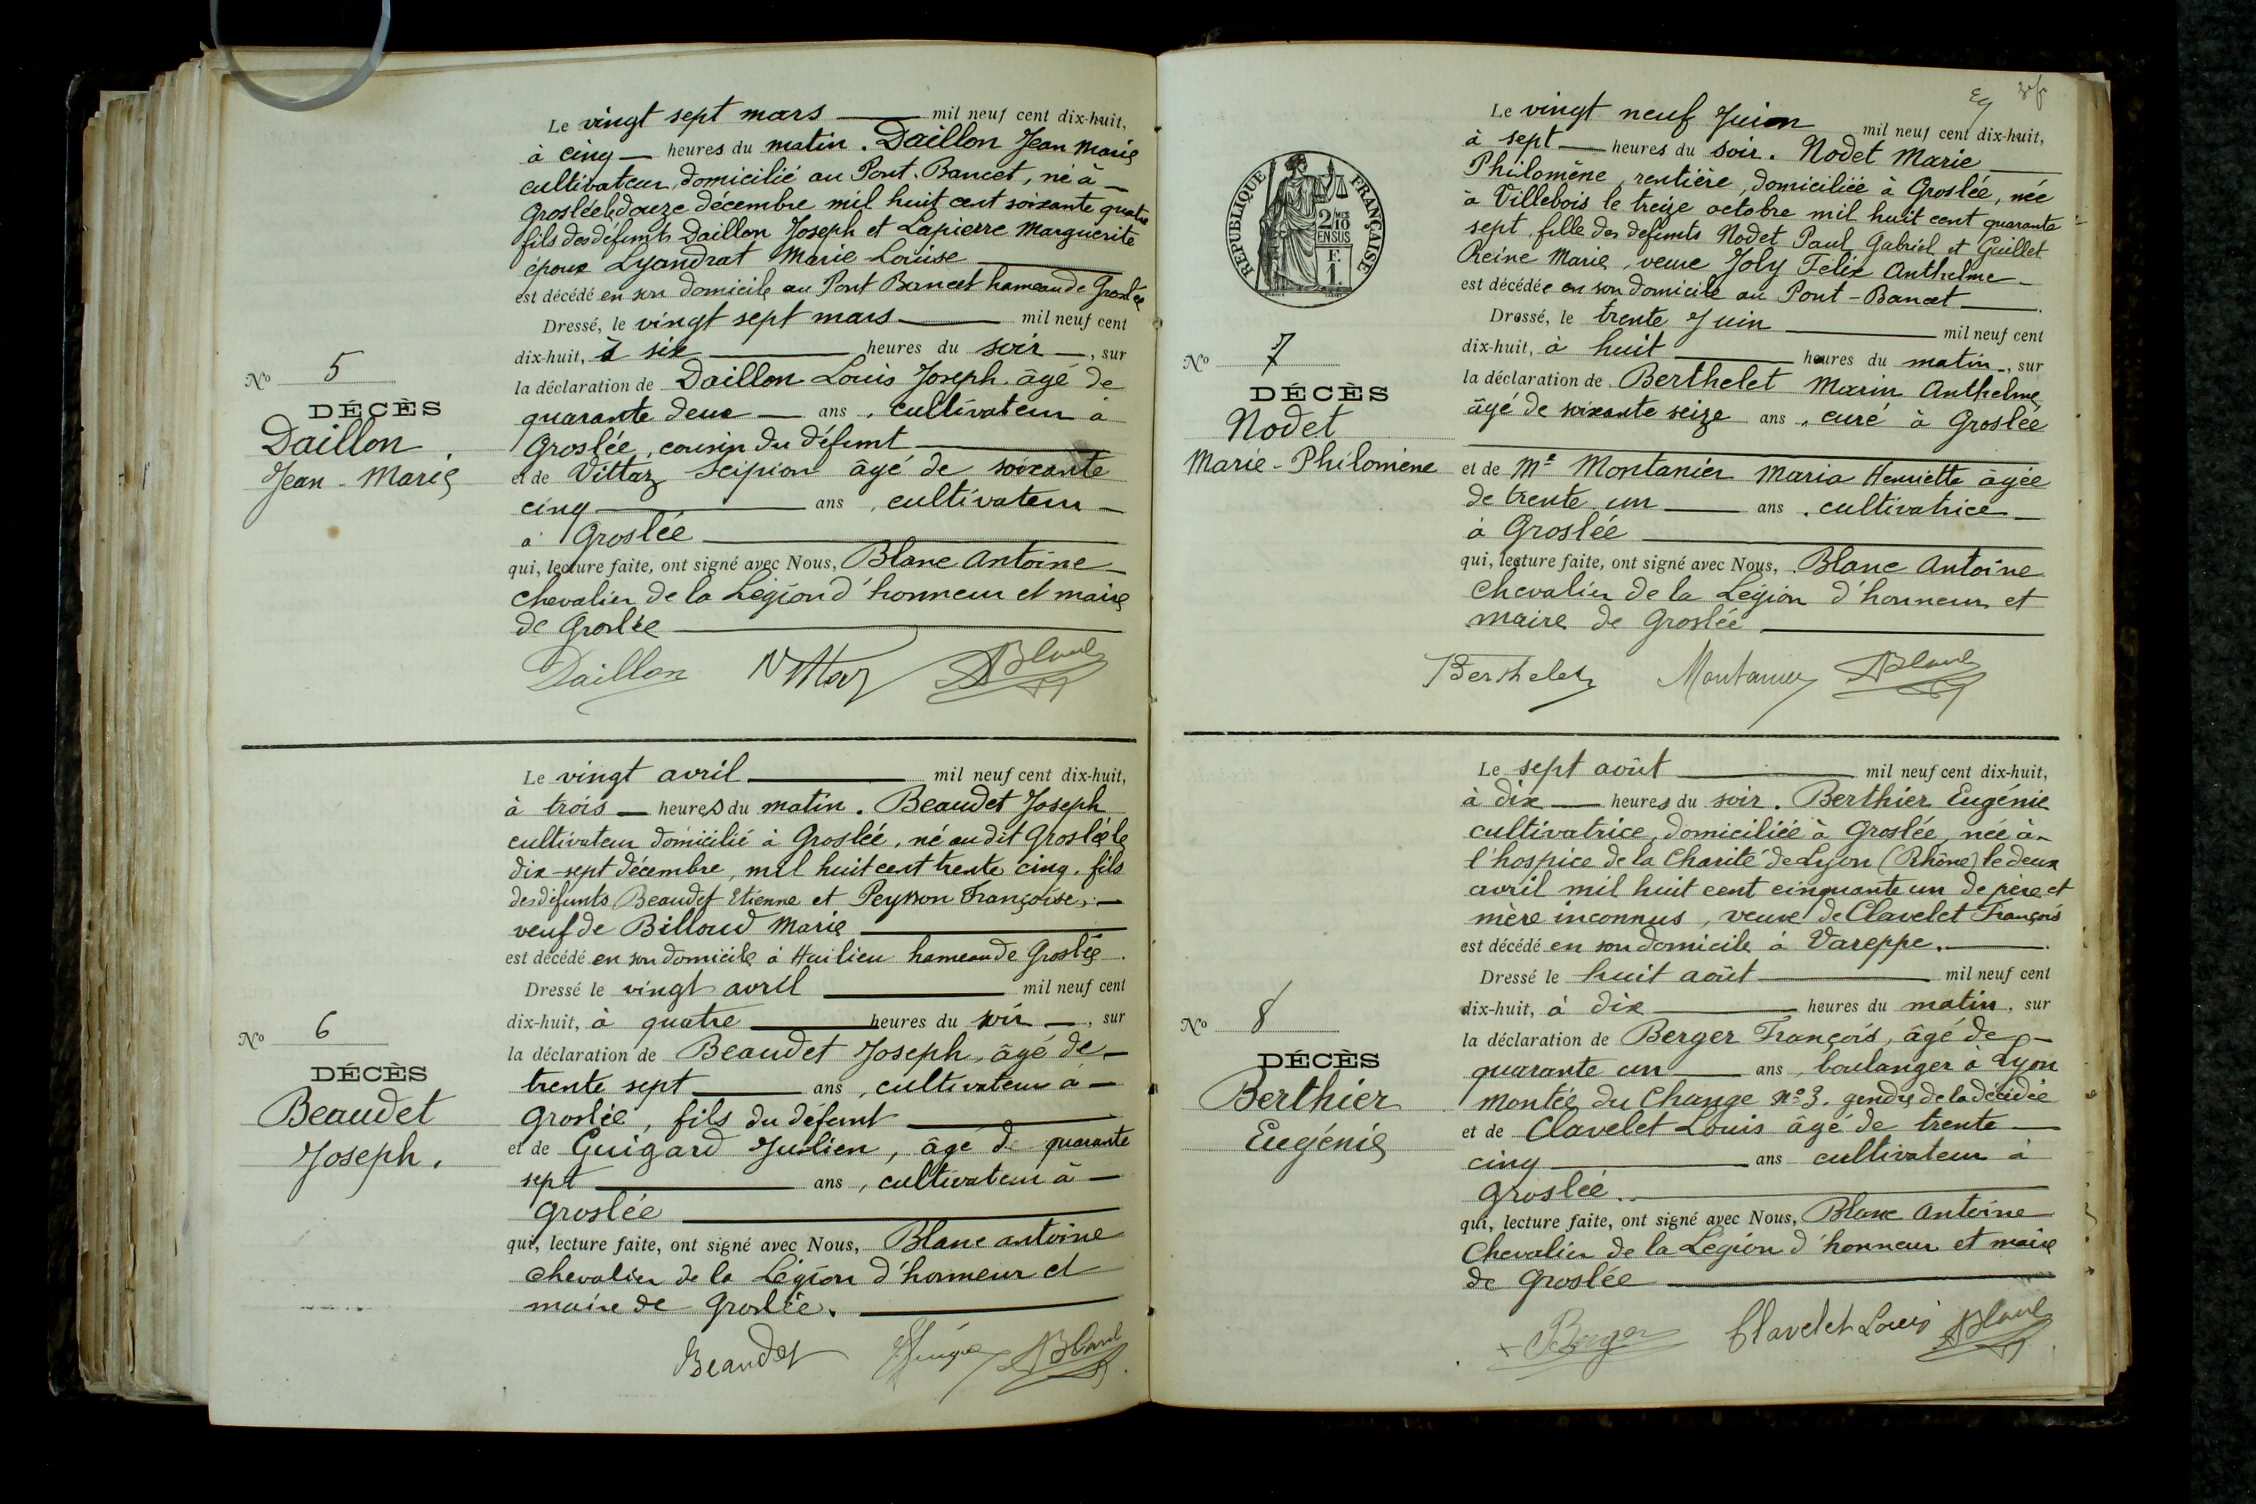 Le vingt sept mars mil neuf cent dix-huit,
à cinq heures du matin. Daillon Jean Marie
cultivateur, domicilié au Pont-Bancet, né à
Groslée le douze décembre mil huit cent soixante quatre
fils des défunts Daillon Joseph et Lapierre Marguerite
époux Lyandrat Marie Louise
est décédé en son domicile au Pont Bancet hameau de Groslée
Dressé, le vingt sept mars mil neuf cent
dix-huit, à six heures du soir, sur
la déclaration de Daillon Louis Joseph, âgé de
quarante deux ans, cultivateur à
Groslée, cousin du défunt
et de Vittaz Scipion âgé de soixante
cinq ans, cultivateur
à Groslée
qui, lecture faite, ont signé avec Nous, Blanc Antoine
chevalier de la Légion d'honneur et maire
de Groslée
Daillon Vittaz ABlanc
No 5
DÉCÈS
Daillon
Jean-Marie
Le vingt avril mil neuf cent dix-huit,
à trois heures du matin. Beaudet Joseph
cultivateur domicilié à Groslée, né au dit Groslée le
dix-sept décembre, mil huit cent trente cinq, fils
des défunts Beaudet Etienne et Peysson Françoise,
veuf de Billoud Marie
est décédé en son domicile à Huilieu hameau de Groslée.
Dressé le vingt avril mil neuf cent
dix-huit, à quatre heures du soir, sur
la déclaration de Beaudet Joseph, âgé de
trente sept ans, cultivateur à
Groslée, fils du défunt
et de Guigard Julien, âgé de quarante
sept ans, cultivateur à
Groslée
qui, lecture faite, ont signé avec Nous, Blanc antoine
chevalier de la Légion d'honneur et
maire de Groslée.
Beaudet ABlanc
No 6
DÉCÈS
Beaudet
Joseph.
RÉPUBLIQUE FRANÇAISE
2/10MES
EN SUS
F.
1.
Le vingt neuf Juin mil neuf cent dix-huit,
à sept heures du soir. Nodet Marie
Philomène, rentière, domiciliée à Groslée, née
à Villebois le treize octobre mil huit cent quarante
sept, fille des défunts Nodet Paul Gabriel et Guillet
Reine Marie, veuve Joly Félix Anthelme
est décédée en son domicile au Pont-Bancet.
Dressé, le trente Juin mil neuf cent
dix-huit, à huit heures du matin, sur
la déclaration de Berthelet Marin Anthelme
âgé de soixante seize ans, curé à Groslée
et de Me Montanier Maria Henriette âgée
de trente un ans, cultivatrice
à Groslée
qui, lecture faite, ont signé avec Nous, Blanc Antoine
chevalier de la Légion d'honneur et
maire de Groslée
Berthelet Montanier ABlanc
No 7
DÉCÈS
Nodet
Marie-Philomène
Le sept août mil neuf cent dix-huit,
à dix heures du soir. Berthier Eugénie
cultivatrice, domiciliée à Groslée, née à
l'hospice de la Charité de Lyon (Rhône) le deux
avril mil huit cent cinquante un de père et
mère inconnus, veuve de Clavelet François
est décédé en son domicile à Vareppe.
Dressé le huit août mil neuf cent
dix-huit, à dix heures du matin, sur
la déclaration de Berger François, âgé de
quarante un ans, boulanger à Lyon
montée du Change no 3. gendre de la décédée
et de Clavelet Louis âgé de trente
cinq ans cultivateur à
Groslée.
qui, lecture faite, ont signé avec Nous, Blanc Antoine
Chevalier de la Légion d'honneur et maire
de Groslée
Berger Clavelet Louis ABlanc
No 8
DÉCÈS
Berthier
Eugénie